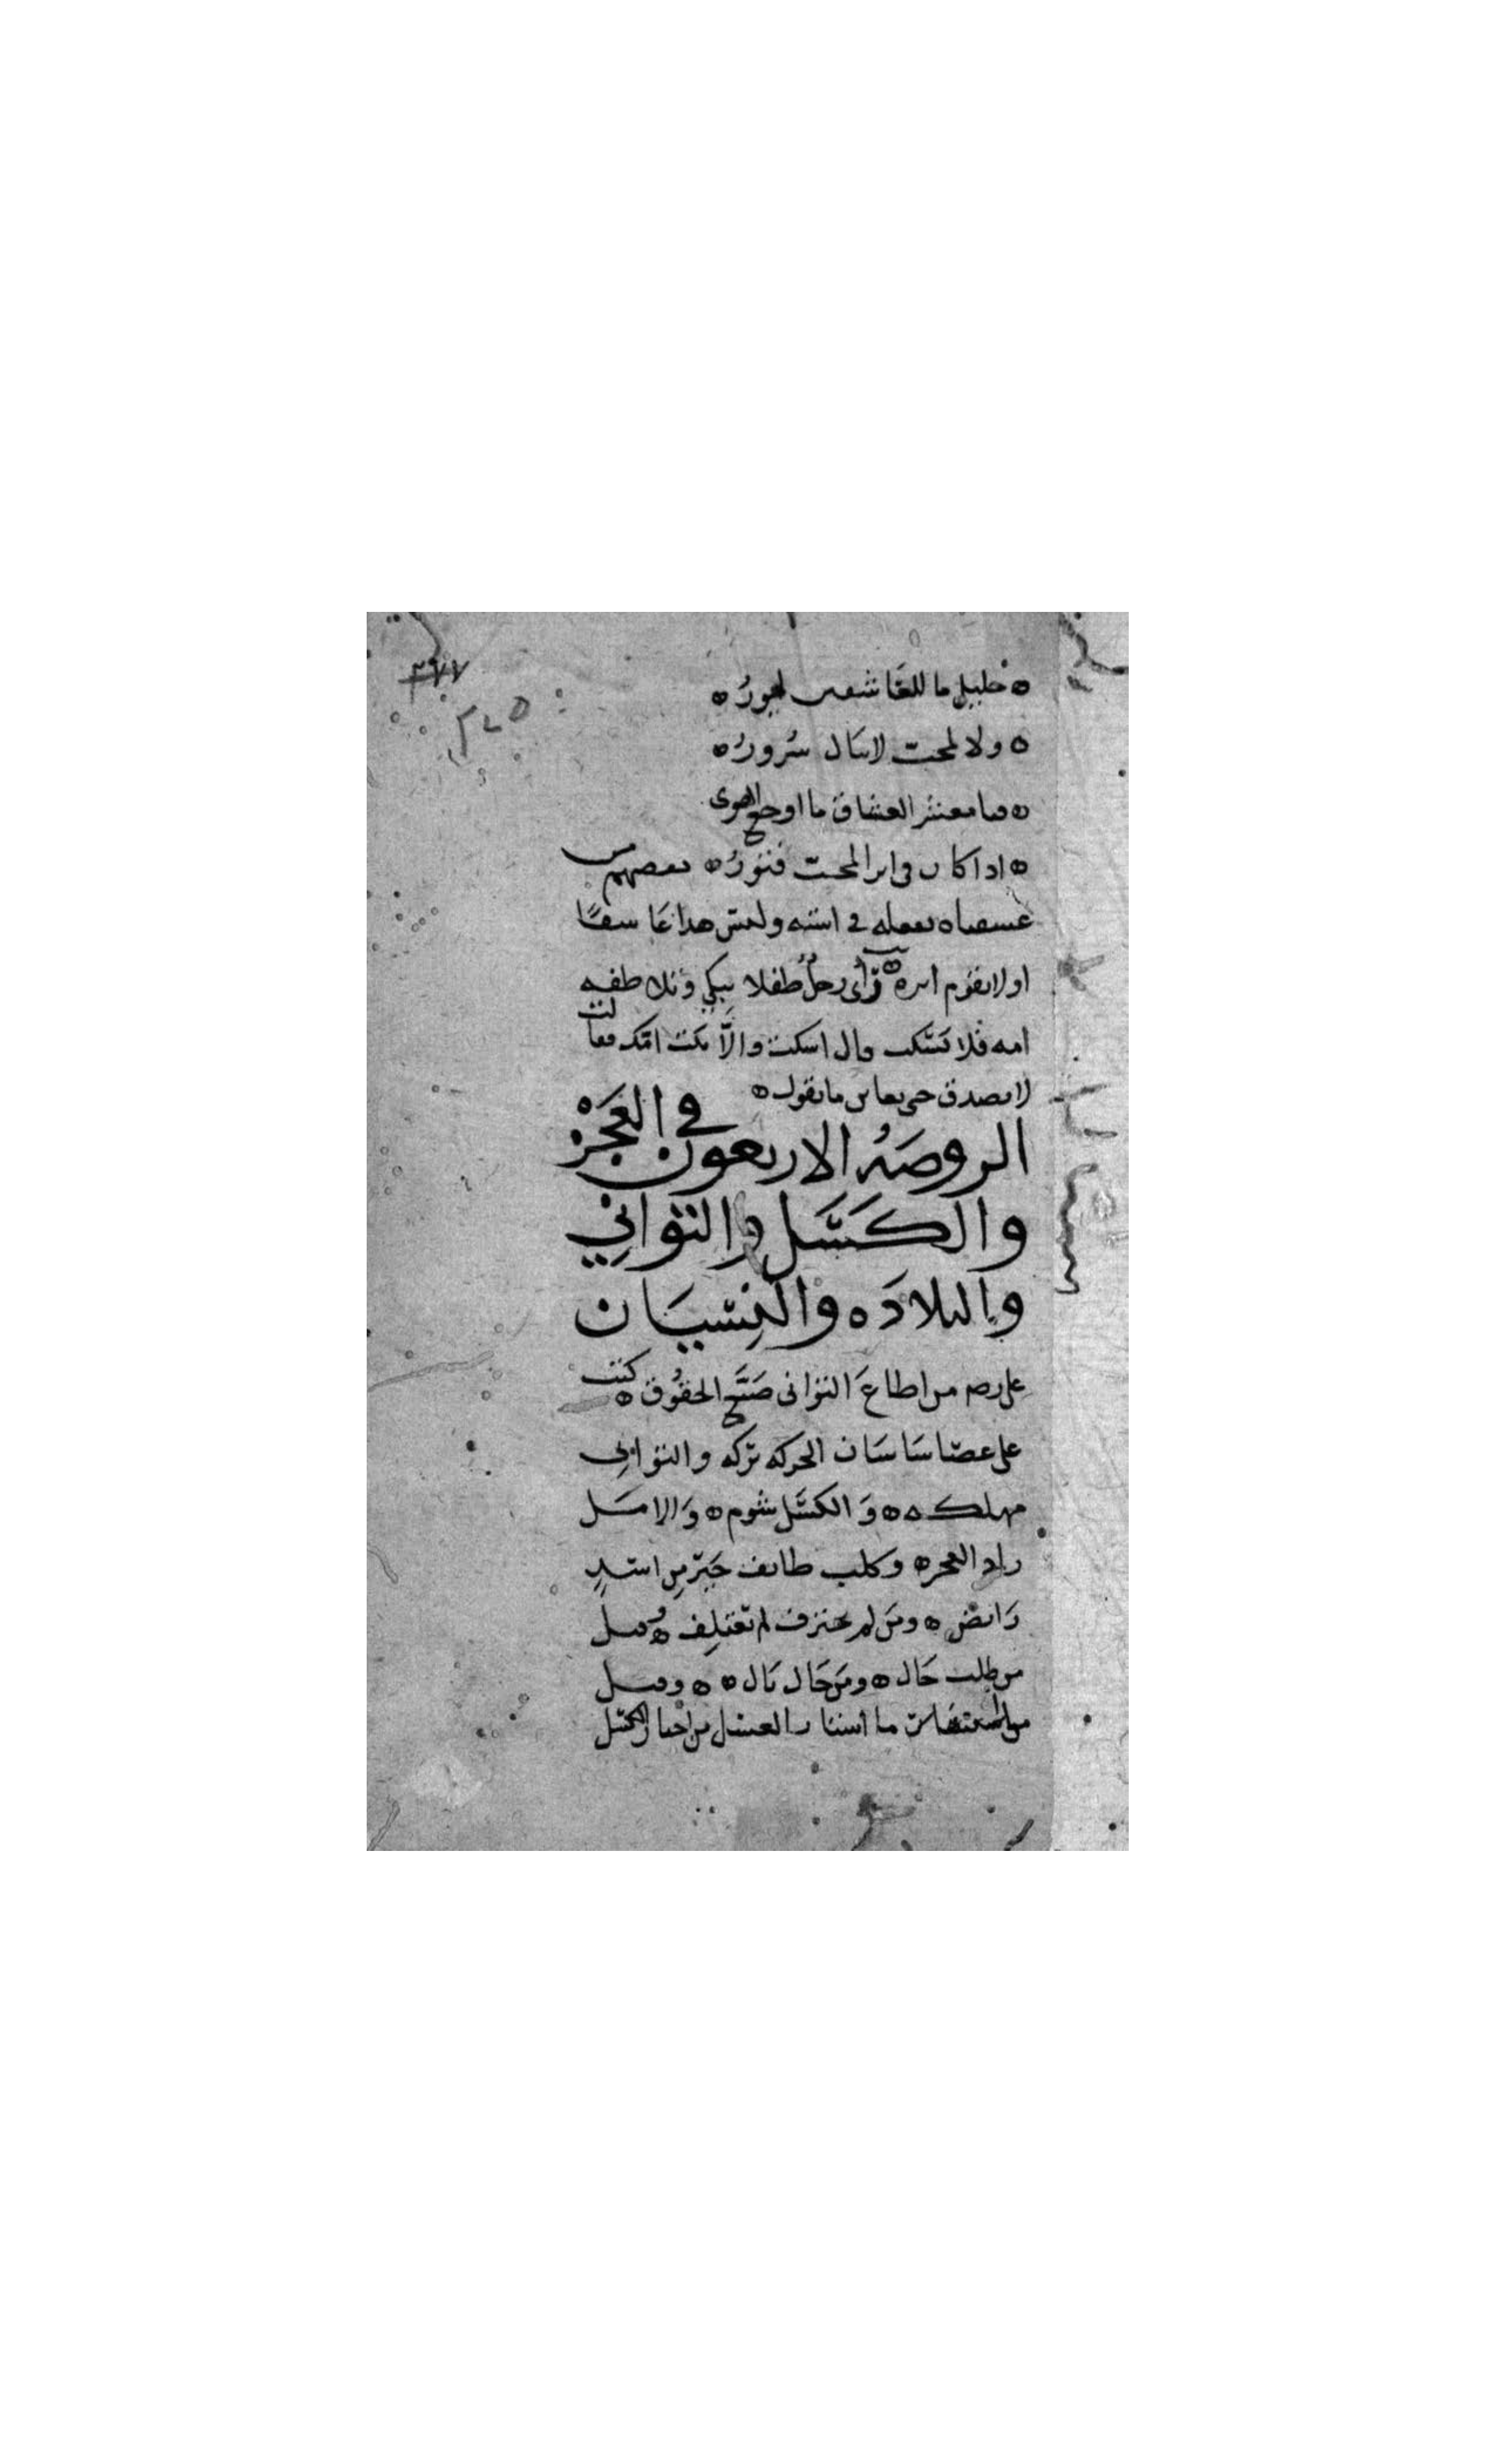 ٣٧٧
خليلي ما للعاشقين ايورُ
ولا لمحب لا ينال سُرورُ
فيا معشر العشاق ما اوجع الهوى
اذا كان في اير المحب فتورُ بعضهم من
يفعله في استه وليس هذا عاشقًا
او لا يقوم ايره رأى رجلٌ طفلا يبكي وتلاطفه
امه فلا يَسْكت وال اسكت والّا نكت امّك فقالت
لا يصدق حتى يعاين ما يقول
الروضةُ الاربعون في العَجْز
والكَسَل والتواني
والبلادَه والنِسْيَان
علي رضه من اطاعَ التواني ضَيَّع الحقُوق كتب
على عصَا سَاسَان الحركه بركه والتواني
مهلكه وَالكسَل شوم وَالامَل
زاد العجزه وكلب طائف خَيْر من اسَدٍ
رَابض ومَن لم يحترف لم يعتلف وقيل
من طلب جَال ومَن جَال نَال وقيل
ما اشتار العسل من اختار الكسَل